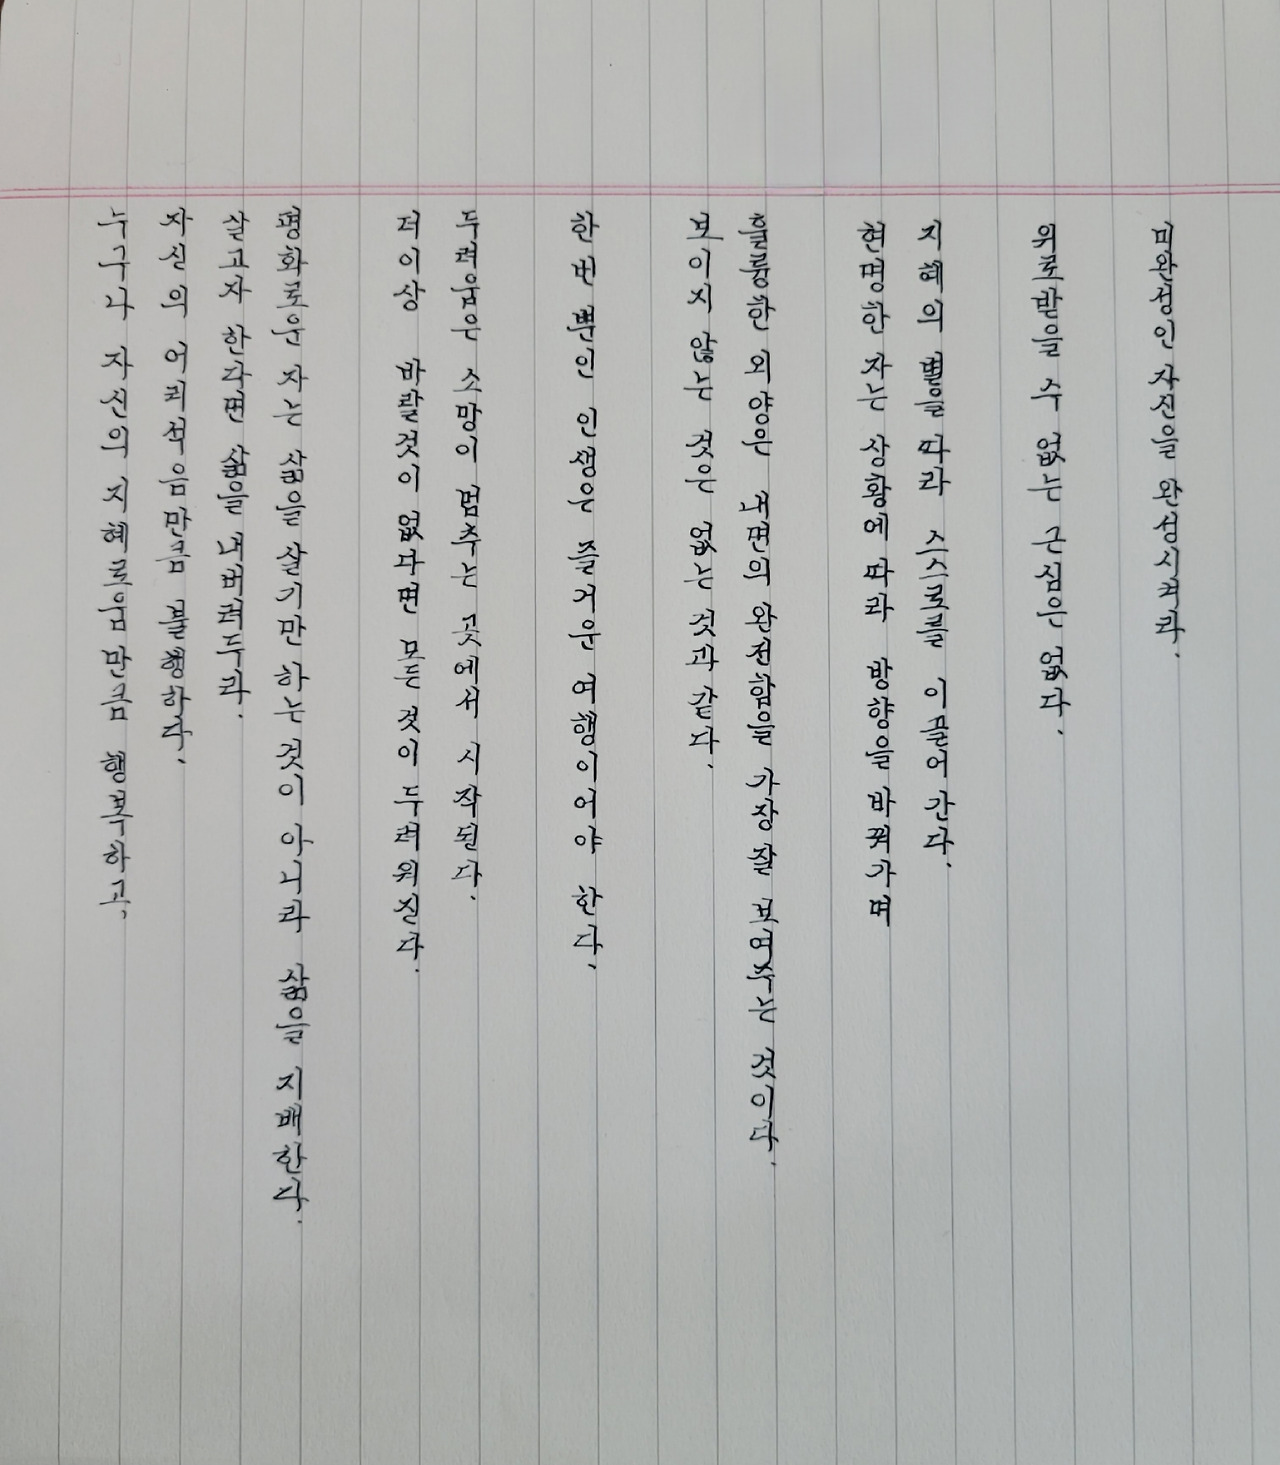 누구나 자신의 지혜로움만큼 행복하고,
자신의 어리석음만큼 불행하다.
살고자 한다면 삶을 내버려두라.
평화로운 자는 삶을 살기만 하는것이 아니라 삶을 지배한다.
더이상 바랄것이 없다면 모든 것이 두려워진다.
두려움은 소망이 멈추는 곳에서 시작된다.
한번 뿐인 인생은 즐거운 여행이어야 한다.
보이지 않는 것은 없는 것과 같다.
훌륭한 외양은 내면의 완전함을 가장 잘 보여주는 것이다.
현명한 자는 상황에 따라 방향을 바꿔가며
지혜의 별을 따라 스스로를 이끌어 간다.
위로받을 수 없는 근심은 없다.
미완성인 자신을 완성시켜라.